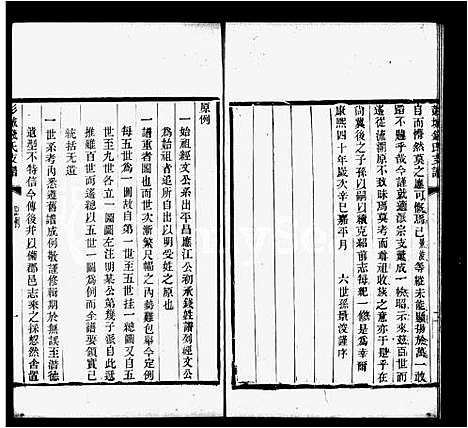 自而湑然莫之應可慨焉已
等從未能顯揚於萬一敢
不勉乎哉今謹就遜派宗支彙成一牒昭示來世而
從此流溯原不致昧焉莫考而尊祖敬宗或于是乎在
尚冀後之子孫以嗣以續克紹前志每期一修是為幸爾
康熙四十年歲次辛巳嘉平月　六世孫景浚謹序
原例
一始祖經文公系出平昌應江公初承錢姓譜列經文公
為始祖者追所自出以明受姓之原也
一譜重者圖也而世次漸繁尺幅之內勢難包舉今定以
每五世為一圖故自第一世至五世挂一總圖又自五
世至九世各立一圖圖左注明某公第幾子派自此遞
推雖百世而遙總以五世一圖為例而全譜要領實已
統括无遺
一世系考內悉遵舊譜成例敬謹修輯期於無誤至潛德
遺型不特信今傳後并以備郡邑志乘之採愸然舍置
彭城錢氏支譜